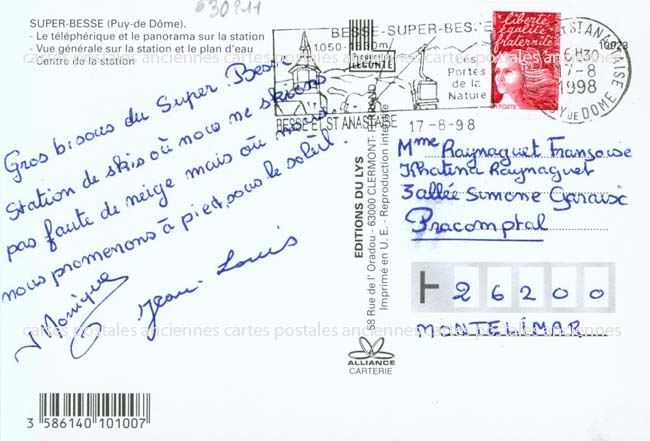 630211
SUPER-BESSE (Puy-de Dôme).
- Le téléphérique et le panorama sur la station
- Vue générale sur la station et le plan d'eau
- Centre de la station
Gros bisous du Super. Besse
Station de skis où nous ne skions
pas faute de neige mais où nous
nous promenons à pied, sous le soleil.
Monique
Jean Louis
3 586140 101007
EDITIONS DU LYS
58 Rue de l'Oradou - 63000 CLERMONT-FERRAND
Imprimé en U. E. - Reproduction interdite
ALLIANCE
CARTERIE
BESSE-SUPER-BESSE
1050-1850m
LECONTE
Les
Portes
de la
Nature
BESSE ET ST ANASTAISE
liberté
égalité
fraternité
LA POSTE
ST ANASTAISE
16H30
17-8
1998
PUY DE DOME
16923
17-8-98
Mme Raynaguet Françoise
Khatina Raynaguet
3 allée Simone Garaisc
Pracomptal
26200
MONTELIMAR
cartes postales anciennes cartes postales anciennes cartes postales anciennes
cartes postales anciennes cartes postales anciennes cartes postales anciennes